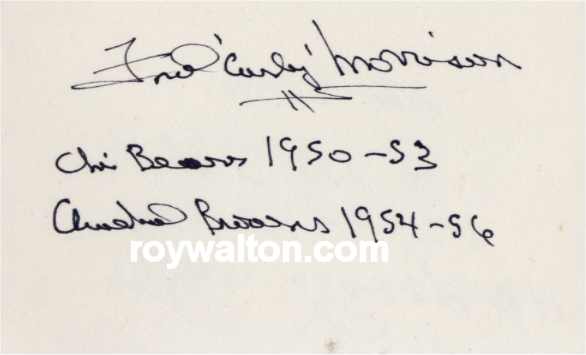 Fred "Curly" Morrison
Chi Bears 1950-53
Cleveland Browns 1954-56
roywalton.com